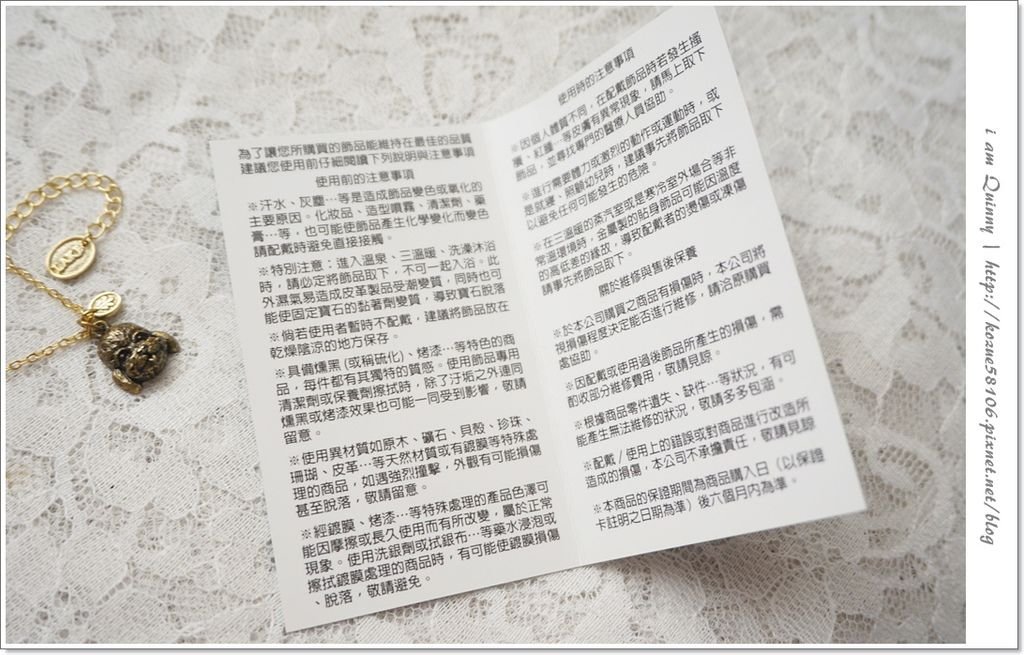 為了讓您所購買的飾品能維持在最佳的品質
建議您使用前仔細閱讀下列說明與注意事項
使用前的注意事項
※汗水、灰塵…等是造成飾品變色或氧化的
主要原因。化妝品、造型噴霧、清潔劑、藥
膏…等，也可能使飾品產生化學變化而變色
請配戴時避免直接接觸。
※特別注意：進入溫泉、三溫暖、洗澡沐浴
時，請必定將飾品取下，不可一起入浴。此
外濕氣易造成皮革製品受潮變質，同時也可
能使固定寶石的黏著劑變質，導致寶石脫落
※倘若使用者暫時不配戴，建議將飾品放在
乾燥陰涼的地方保存。
※具備燻黑(或稱硫化)、烤漆…等特色的商
品，每件都有其獨特的質感。使用飾品專用
清潔劑或保養劑擦拭時，除了汙垢之外連同
燻黑或烤漆效果也可能一同受到影響，敬請
留意。
※使用異材質如原木、礦石、貝殼、珍珠、
珊瑚、皮革…等天然材質或有鍍膜等特殊處
理的商品，如遇強烈撞擊，外觀有可能損傷
甚至脫落，敬請留意。
※經鍍膜、烤漆…等特殊處理的產品色澤可
能因摩擦或長久使用而有所改變，屬於正常
現象。使用洗銀劑或拭銀布…等藥水浸泡或
擦拭鍍膜處理的商品時，有可能使鍍膜損傷
、脫落，敬請避免。
使用時的注意事項
※因個人體質不同，在配戴飾品時若發生搔
癢、紅腫…等皮膚有異常現象，請馬上取下
飾品，並尋找專門的醫療人員協助。
※進行需要體力或激烈的動作或運動時，或
是就寢、照顧幼兒時，建議事先將飾品取下
以避免任何可能發生的危險。
※在三溫暖的蒸汽室或是寒冷室外場合等非
常溫環境時，金屬製的貼身飾品可能因溫度
的高低差的緣故，導致配戴者的燙傷或凍傷
請事先將飾品取下。
關於維修與售後保養
※於本公司購買之商品有損傷時，本公司將
視損傷程度決定能否進行維修，請洽原購買
處協助。
※因配戴或使用過後飾品所產生的損傷，需
酌收部分維修費用，敬請見諒。
※根據商品零件遺失、缺件…等狀況，有可
能產生無法維修的狀況，敬請多多包涵。
※配戴/使用上的錯誤或對商品進行改造所
造成的損傷，本公司不承擔責任，敬請見諒
※本商品的保證期間為商品購入日（以保證
卡註明之日期為準）後六個月內為準。
i am Quinny | http://kozue58106.pixnet.net/blog